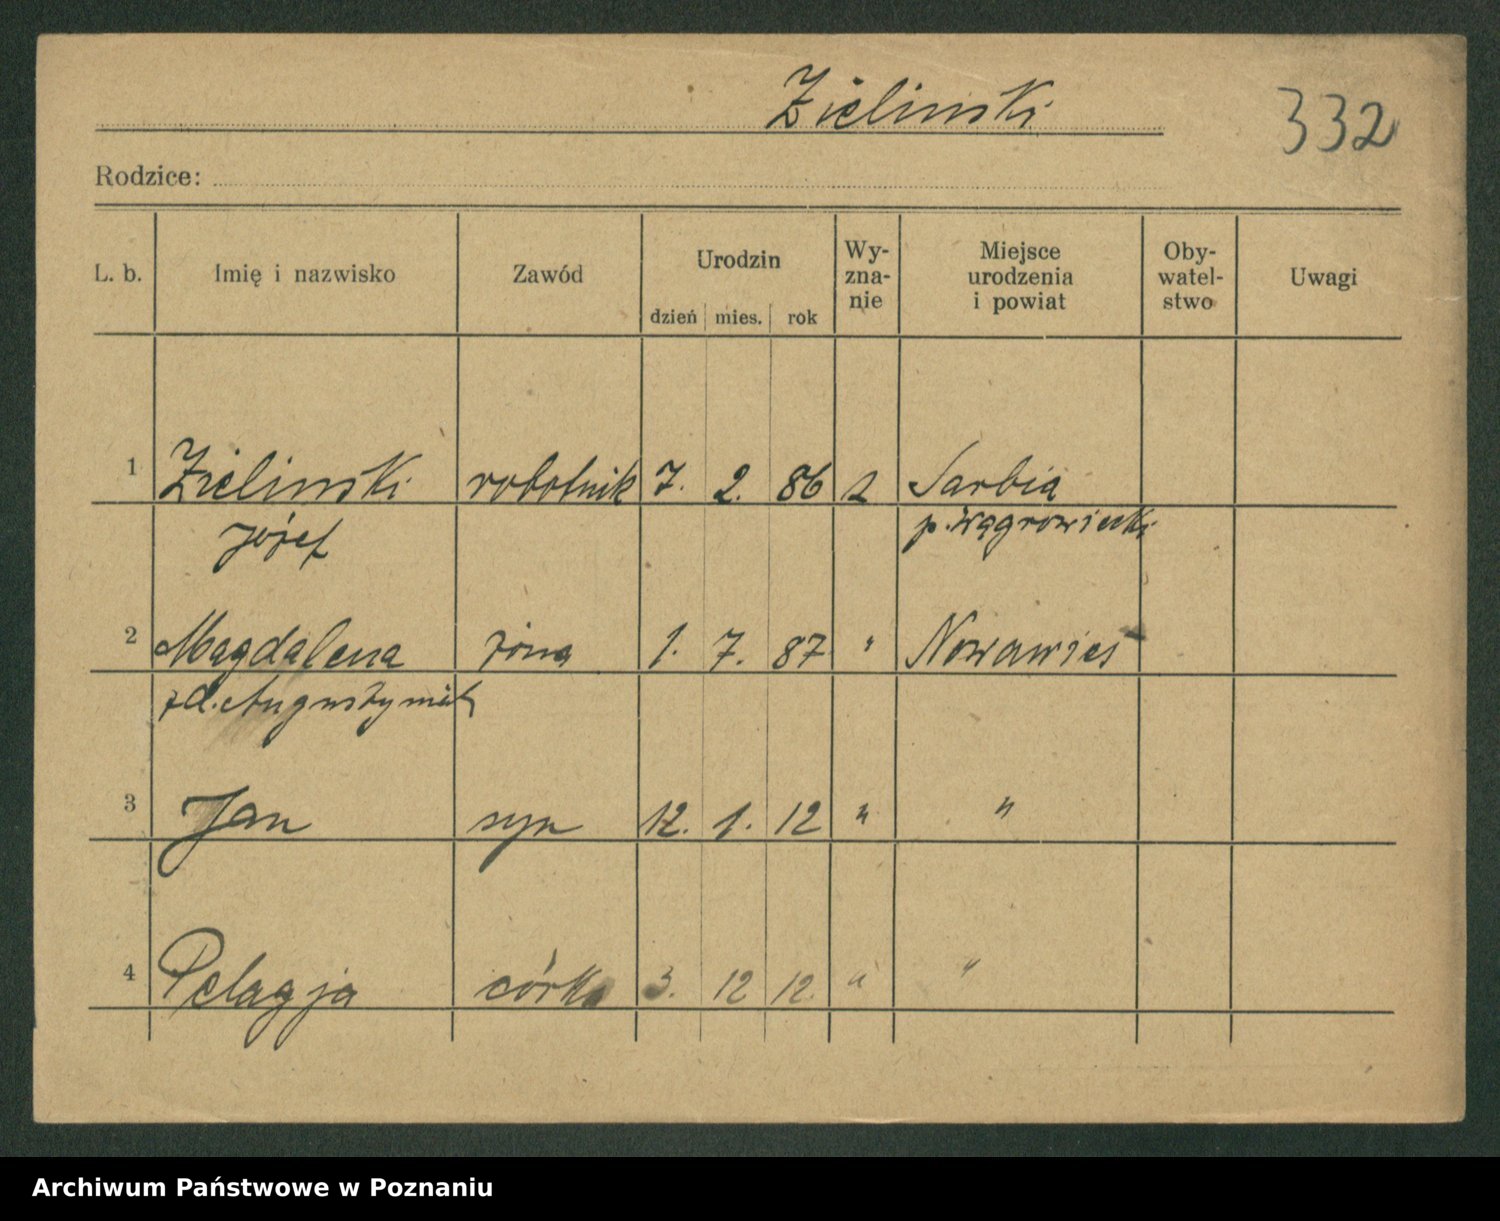 Zielinski
332
Rodzice:
L. b. Imię i nazwisko Zawód Urodzin dzień mies. rok Wy-zna-nie Miejsce urodzenia i powiat Oby-watel-stwo Uwagi
1 Zielinski robotnik 7. 2. 86 Sarbia
Józef p. wągrowiecki
2 Magdalena żona 1. 7. 87 " Nowawieś
zd. Augustyniak
3 Jan syn 12. 1. 12 " "
4 Pelagja córka 3. 12 12. " "
Archiwum Państwowe w Poznaniu